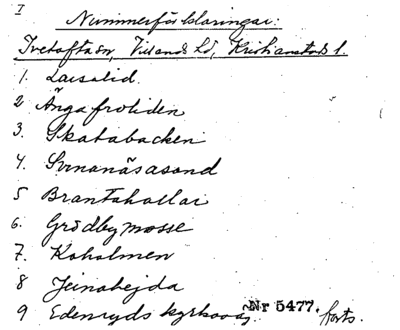 I
Nummerförklaringar:
Ivetofta sn, Villands hd, Kristianstads l.
1. Laisalid.
2 Änga froliden
3. Skatabacken
4. Svinanäsasand
5 Brantahallar
6. Grödbymosse
7. Koholmen
8 Jeinahejda
9 Edenryds kyrkoväg Nr 5477. forts.